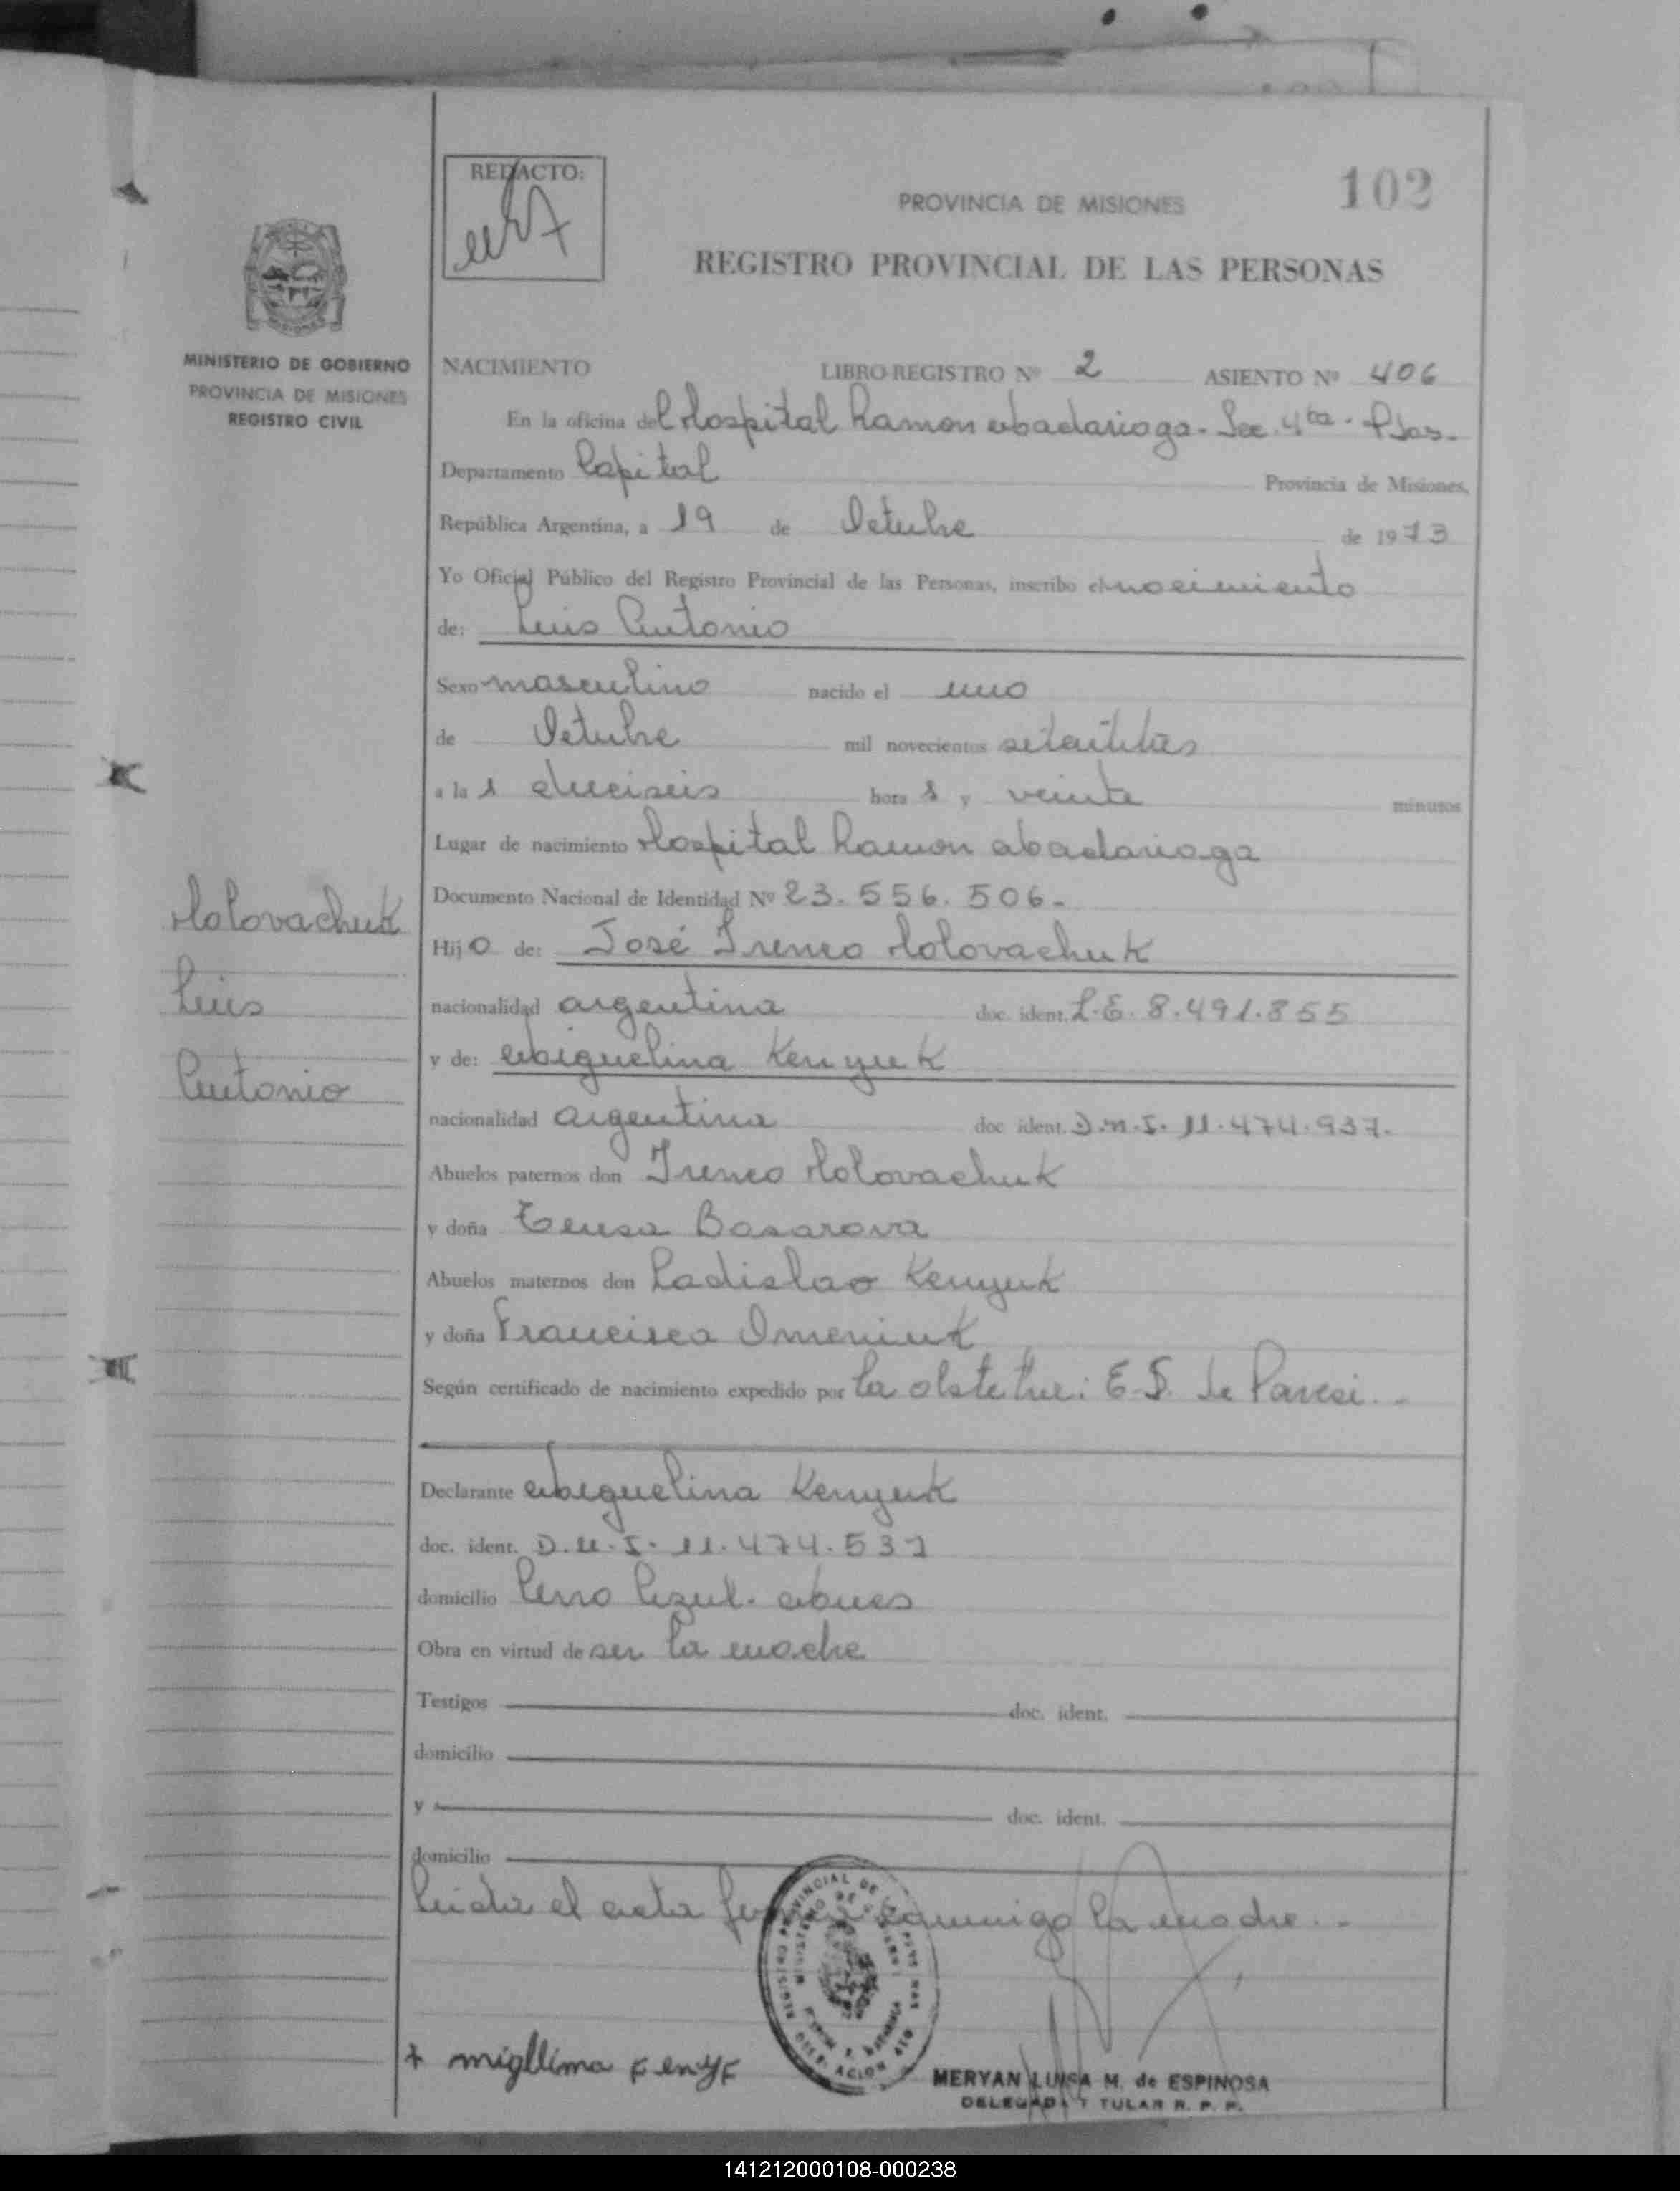 102
REDACTO:
PROVINCIA DE MISIONES
REGISTRO PROVINCIAL DE LAS PERSONAS
MINISTERIO DE GOBIERNO
PROVINCIA DE MISIONES
REGISTRO CIVIL
NACIMIENTO LIBRO-REGISTRO Nº 2 ASIENTO Nº 406
En la oficina del Hospital Ramon Madariaga - Sec. 4ta - Pdas -
Departamento Capital Provincia de Misiones,
República Argentina, a 19 de Octubre de 1973
Yo Oficial Público del Registro Provincial de las Personas, inscribo el nacimiento
de: Luis Antonio
Sexo masculino nacido el uno
de Octubre mil novecientos setentitrés
a las dieciseis horas y veinte minutos
Lugar de nacimiento Hospital Ramon Madariaga
Documento Nacional de Identidad Nº 23.556.506-
Holovachuk
Luis
Antonio
Hijo de: José Ireneo Holovachuk
nacionalidad argentina doc. ident. L.E. 8.491.855
y de: Miguelina Kenyuk
nacionalidad argentina doc ident. D.N.I. 11.474.937.
Abuelos paternos don Ireneo Holovachuk
y doña Teresa Basarova
Abuelos maternos don Ladislao Kenyuk
y doña Francisca Omeniuk
Según certificado de nacimiento expedido por la obstetra: E.S. de Paresi.-
Declarante Miguelina Kenyuk
doc. ident. D.N.I. 11.474.537
domicilio Cerro Azul - Mnes
Obra en virtud de ser la madre
Testigos doc. ident.
domicilio
y doc. ident.
domicilio
Leida el acta conmigo la madre.-
+ migllima
MERYAN LUISA M. de ESPINOSA
DELEGADA TITULAR R. P. P.
141212000108-000238